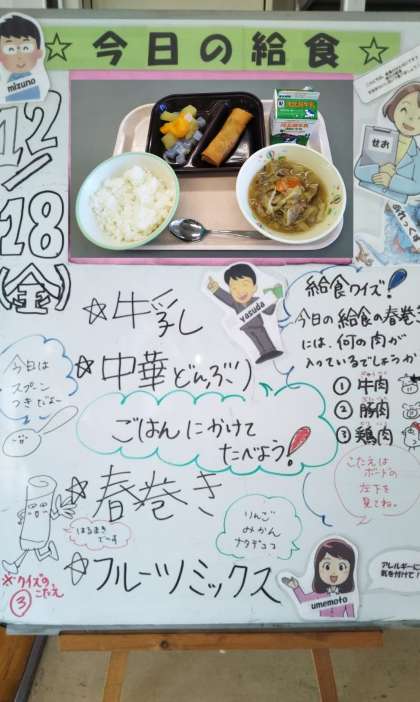 ☆今日の給食☆
mizuno
12/18(金)
せお
☆牛乳
☆中華どんぶり
ごはんにかけて
たべよう!
☆春巻き
☆フルーツミックス
yasuda
給食クイズ!
今日の給食の春巻き
には、何の肉が
入っているでしょうか
① 牛肉
② 豚肉
③ 鶏肉
こたえは
ボードの
左下を
見てね。
今日は
スプーン
つきだよ〜
はるまき
です
りんご
みかん
ナタデココ
※クイズのこたえ
③
umemoto
アレルギーに
気を付けて!